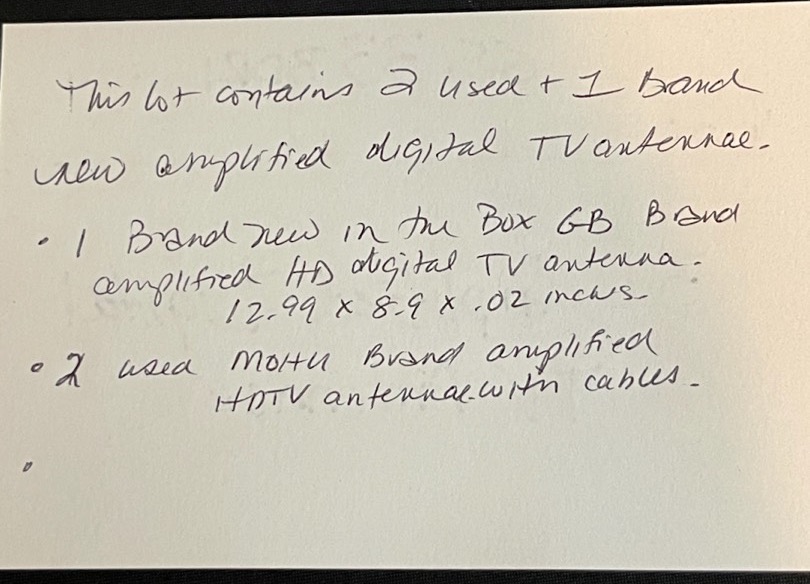 This lot contains 2 used + 1 Brand
new amplified digital TV antennae.
• 1 Brand new in the Box GB Brand
amplified HD digital TV antenna.
12.99 x 8.9 x .02 inches.
• 2 used MOHU Brand amplified
HDTV antennae with cables.
•